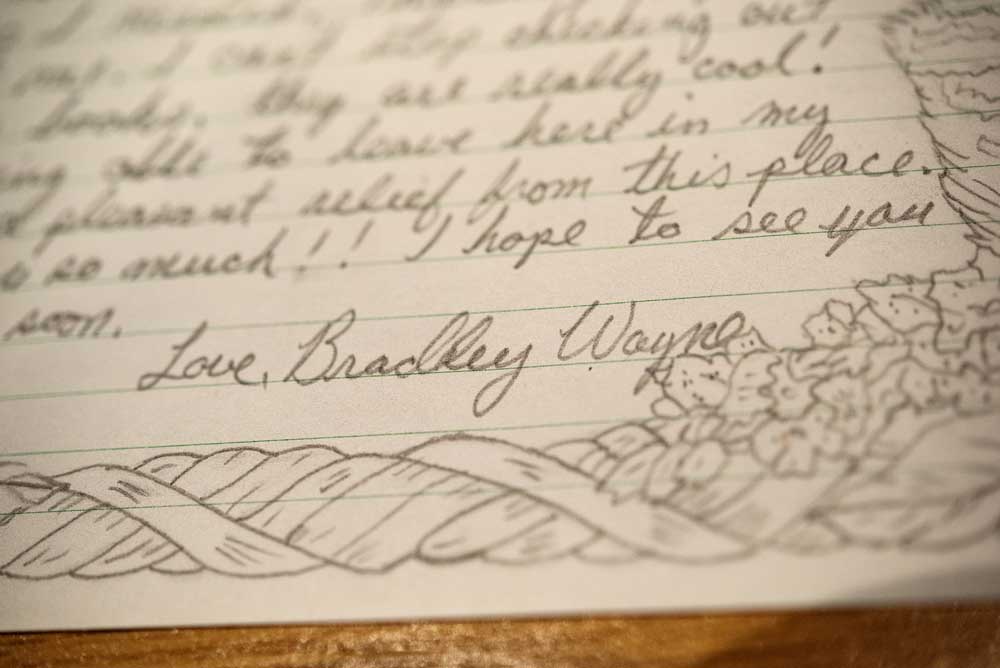 out
my. I can't stop checking out
books. they are really cool!
ing able to leave here in my
d pleasant relief from this place.
u so much!! I hope to see you
soon.
Love, Bradley Wayne